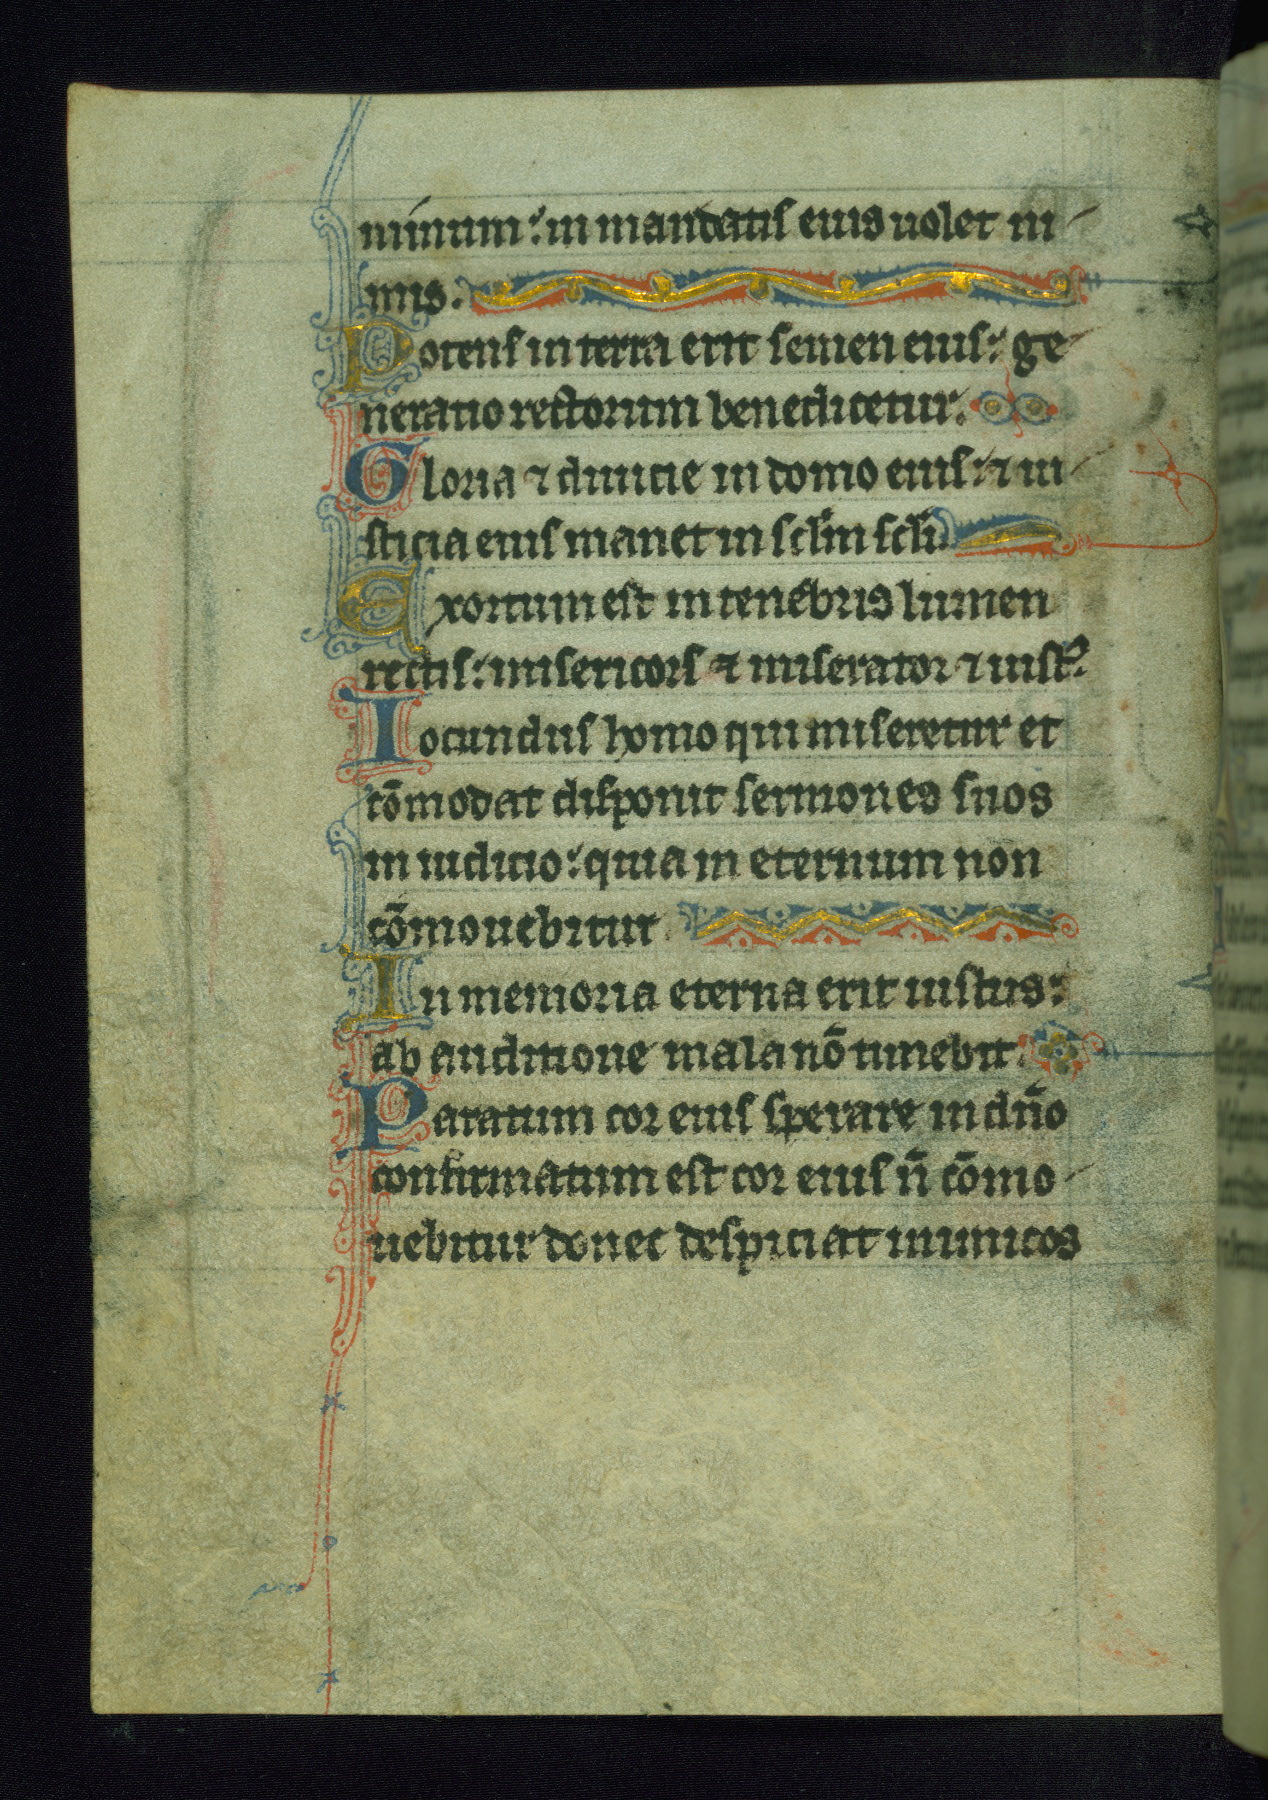 minum: in mandatis eius uolet ni
mis.
Potens in terra erit semen eius: ge
neratio rectorum benedicetur.
Gloria ⁊ diuicie in domo eius: ⁊ iu
sticia eius manet in sclm̄ scli̅.
Exortum est in tenebris lumen
rectis: misericors ⁊ miserator ⁊ iustꝰ
Iocundus homo qui miseretur et
cōmodat disponit sermones suos
in iudicio: quia in eternum non
cōmouebitur
In memoria eterna erit iustus:
ab auditione mala nō timebit.
Paratum cor eius sperare in dn̄o
confirmatum est cor eius n̄ cōmo
uebitur donec despiciat inimicos